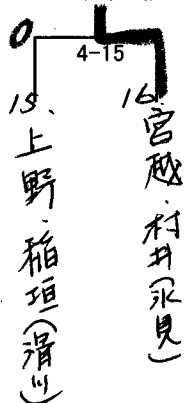 0
4-15
15、上野・稲垣(滑川)
16、宮越・村井(氷見)